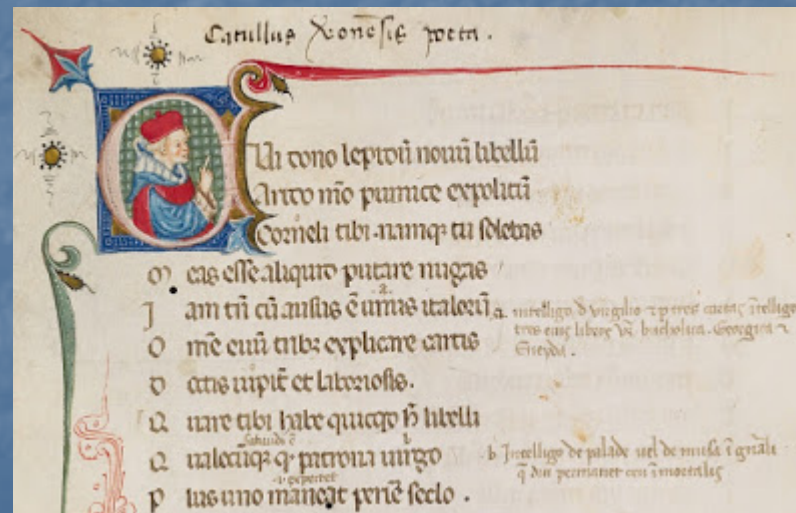 Catullus Veronensis poeta.
Cui dono lepidū nouū libellū
Arido mō pumice expolitū
Corneli tibi namqȝ tu solebas
Meas esse aliquid putare nugas
Iam tū cū ausus ē unus italorū
Omē euū tribȝ explicare cartis
Doctis iupit̄ et laboriosis.
Quare tibi habe quicqd h̄ libelli
Qualecūqȝ qd patrona uirgo
Plus uno maneat perēne seclo.
a. intelligo d̄ virgilio et p tres cartas ītelligo
tres eius libros
buccolica. Georgica et
Eneyda.
b. Intelligo de palade uel de musa ī gnāli
q̄ diu permanet ceu īmortalis